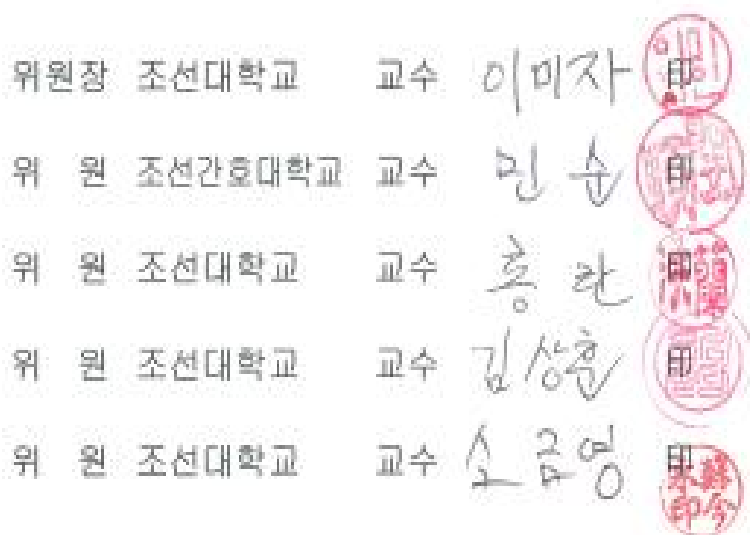 위원장 조선대학교 교수 이미자 印
위 원 조선간호대학교 교수 민 순 印
위 원 조선대학교 교수 홍 란 印
위 원 조선대학교 교수 김상훈 印
위 원 조선대학교 교수 소금영 印